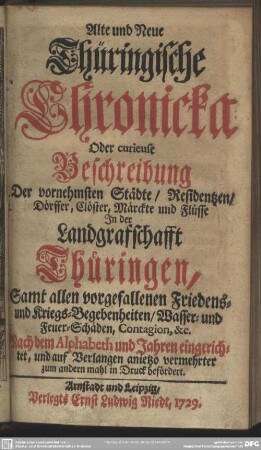 Alte und Neue
Thüringische
Chronicka
Oder curieuse
Beschreibung
Der vornehmsten Städte/ Residentzen/
Dörffer, Clöster, Märckte und Flüsse
In der
Landgrafschafft
Thüringen,
Samt allen vorgefallenen Friedens-
und Kriegs-Begebenheiten/ Wasser- und
Feuer-Schäden, Contagion, &c.
Nach dem Alphabeth und Jahren eingerich-
tet, und auf Verlangen anietzo vermehrter
zum andern mahl in Druck befördert.
Arnstadt und Leipzig,
Verlegts Ernst Ludwig Niedt, 1729.
DFG